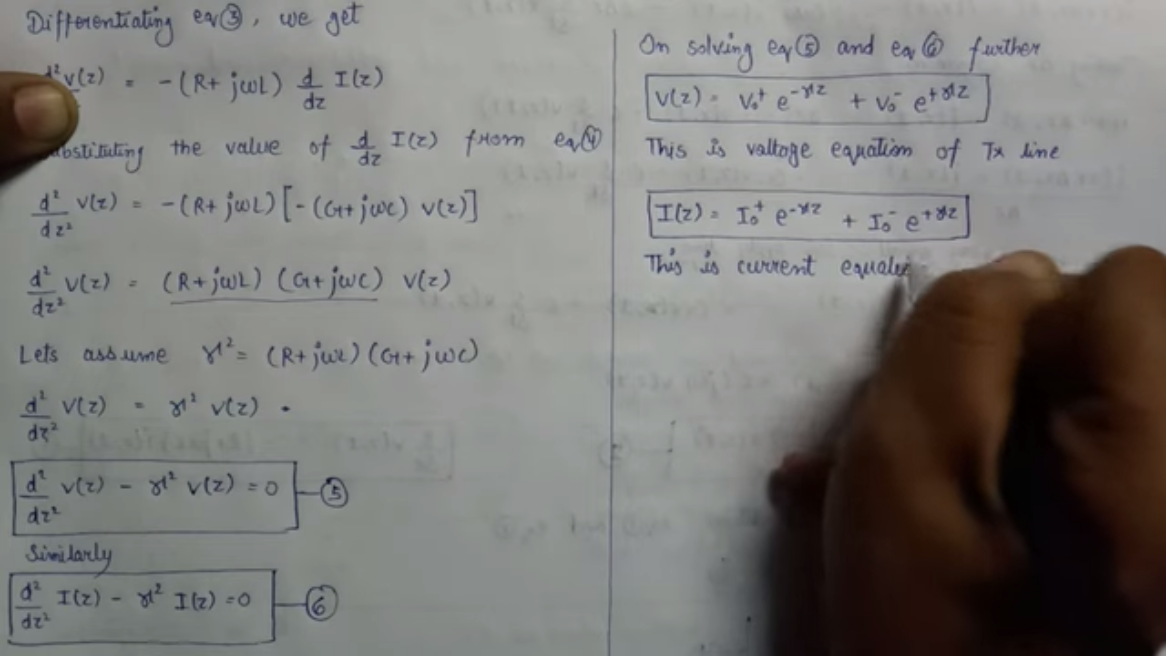 Differentiating eq③, we get
d²v(z) = -(R+jωL) d/dz I(z)
the value of d/dz I(z) from eq④
d²/dz² V(z) = -(R+jωL)[-(G+jωC) V(z)]
d²/dz² V(z) = (R+jωL) (G+jωC) V(z)
Lets assume γ² = (R+jωL)(G+jωC)
d²/dz² V(z) = γ² V(z).
d²/dz² V(z) - γ² V(z) = 0 —⑤
Similarly
d²/dz² I(z) - γ² I(z) = 0 —⑥
On solving eq⑤ and eq⑥ further
V(z) = V₀⁺ e^-γz + V₀⁻ e^+γz
This is voltage equation of Tx line
I(z) = I₀⁺ e^-γz + I₀⁻ e^+γz
This is current